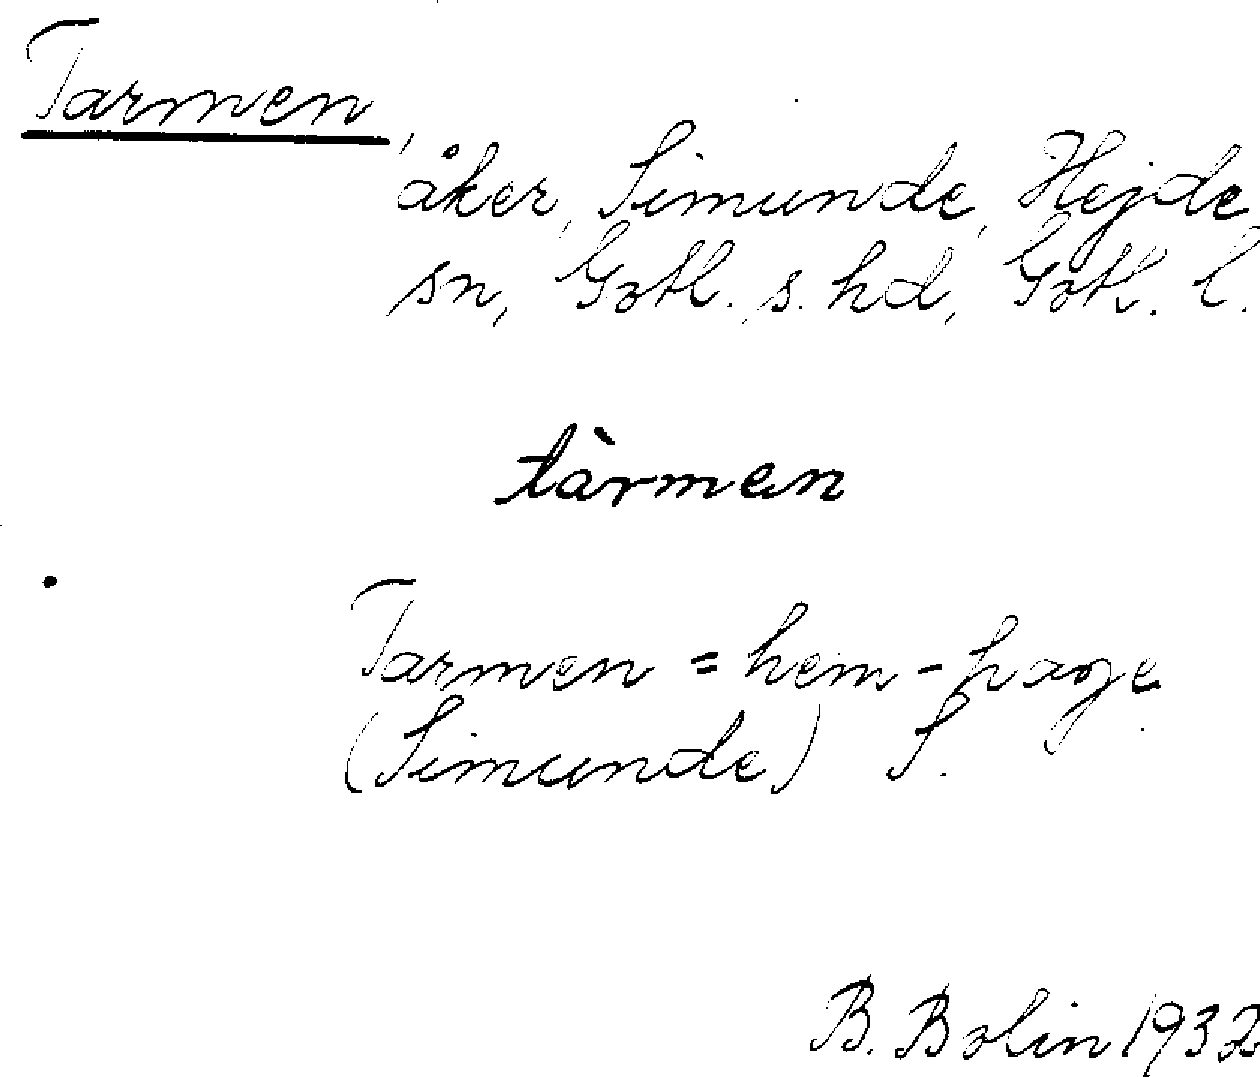 Tarmen,
åker, Simunde, Hejde
sn, Gotl. s. hd, Gotl. l.
tàrmen
Tarmen = hem-hage
(Simunde) S.
B. Bolin 1932